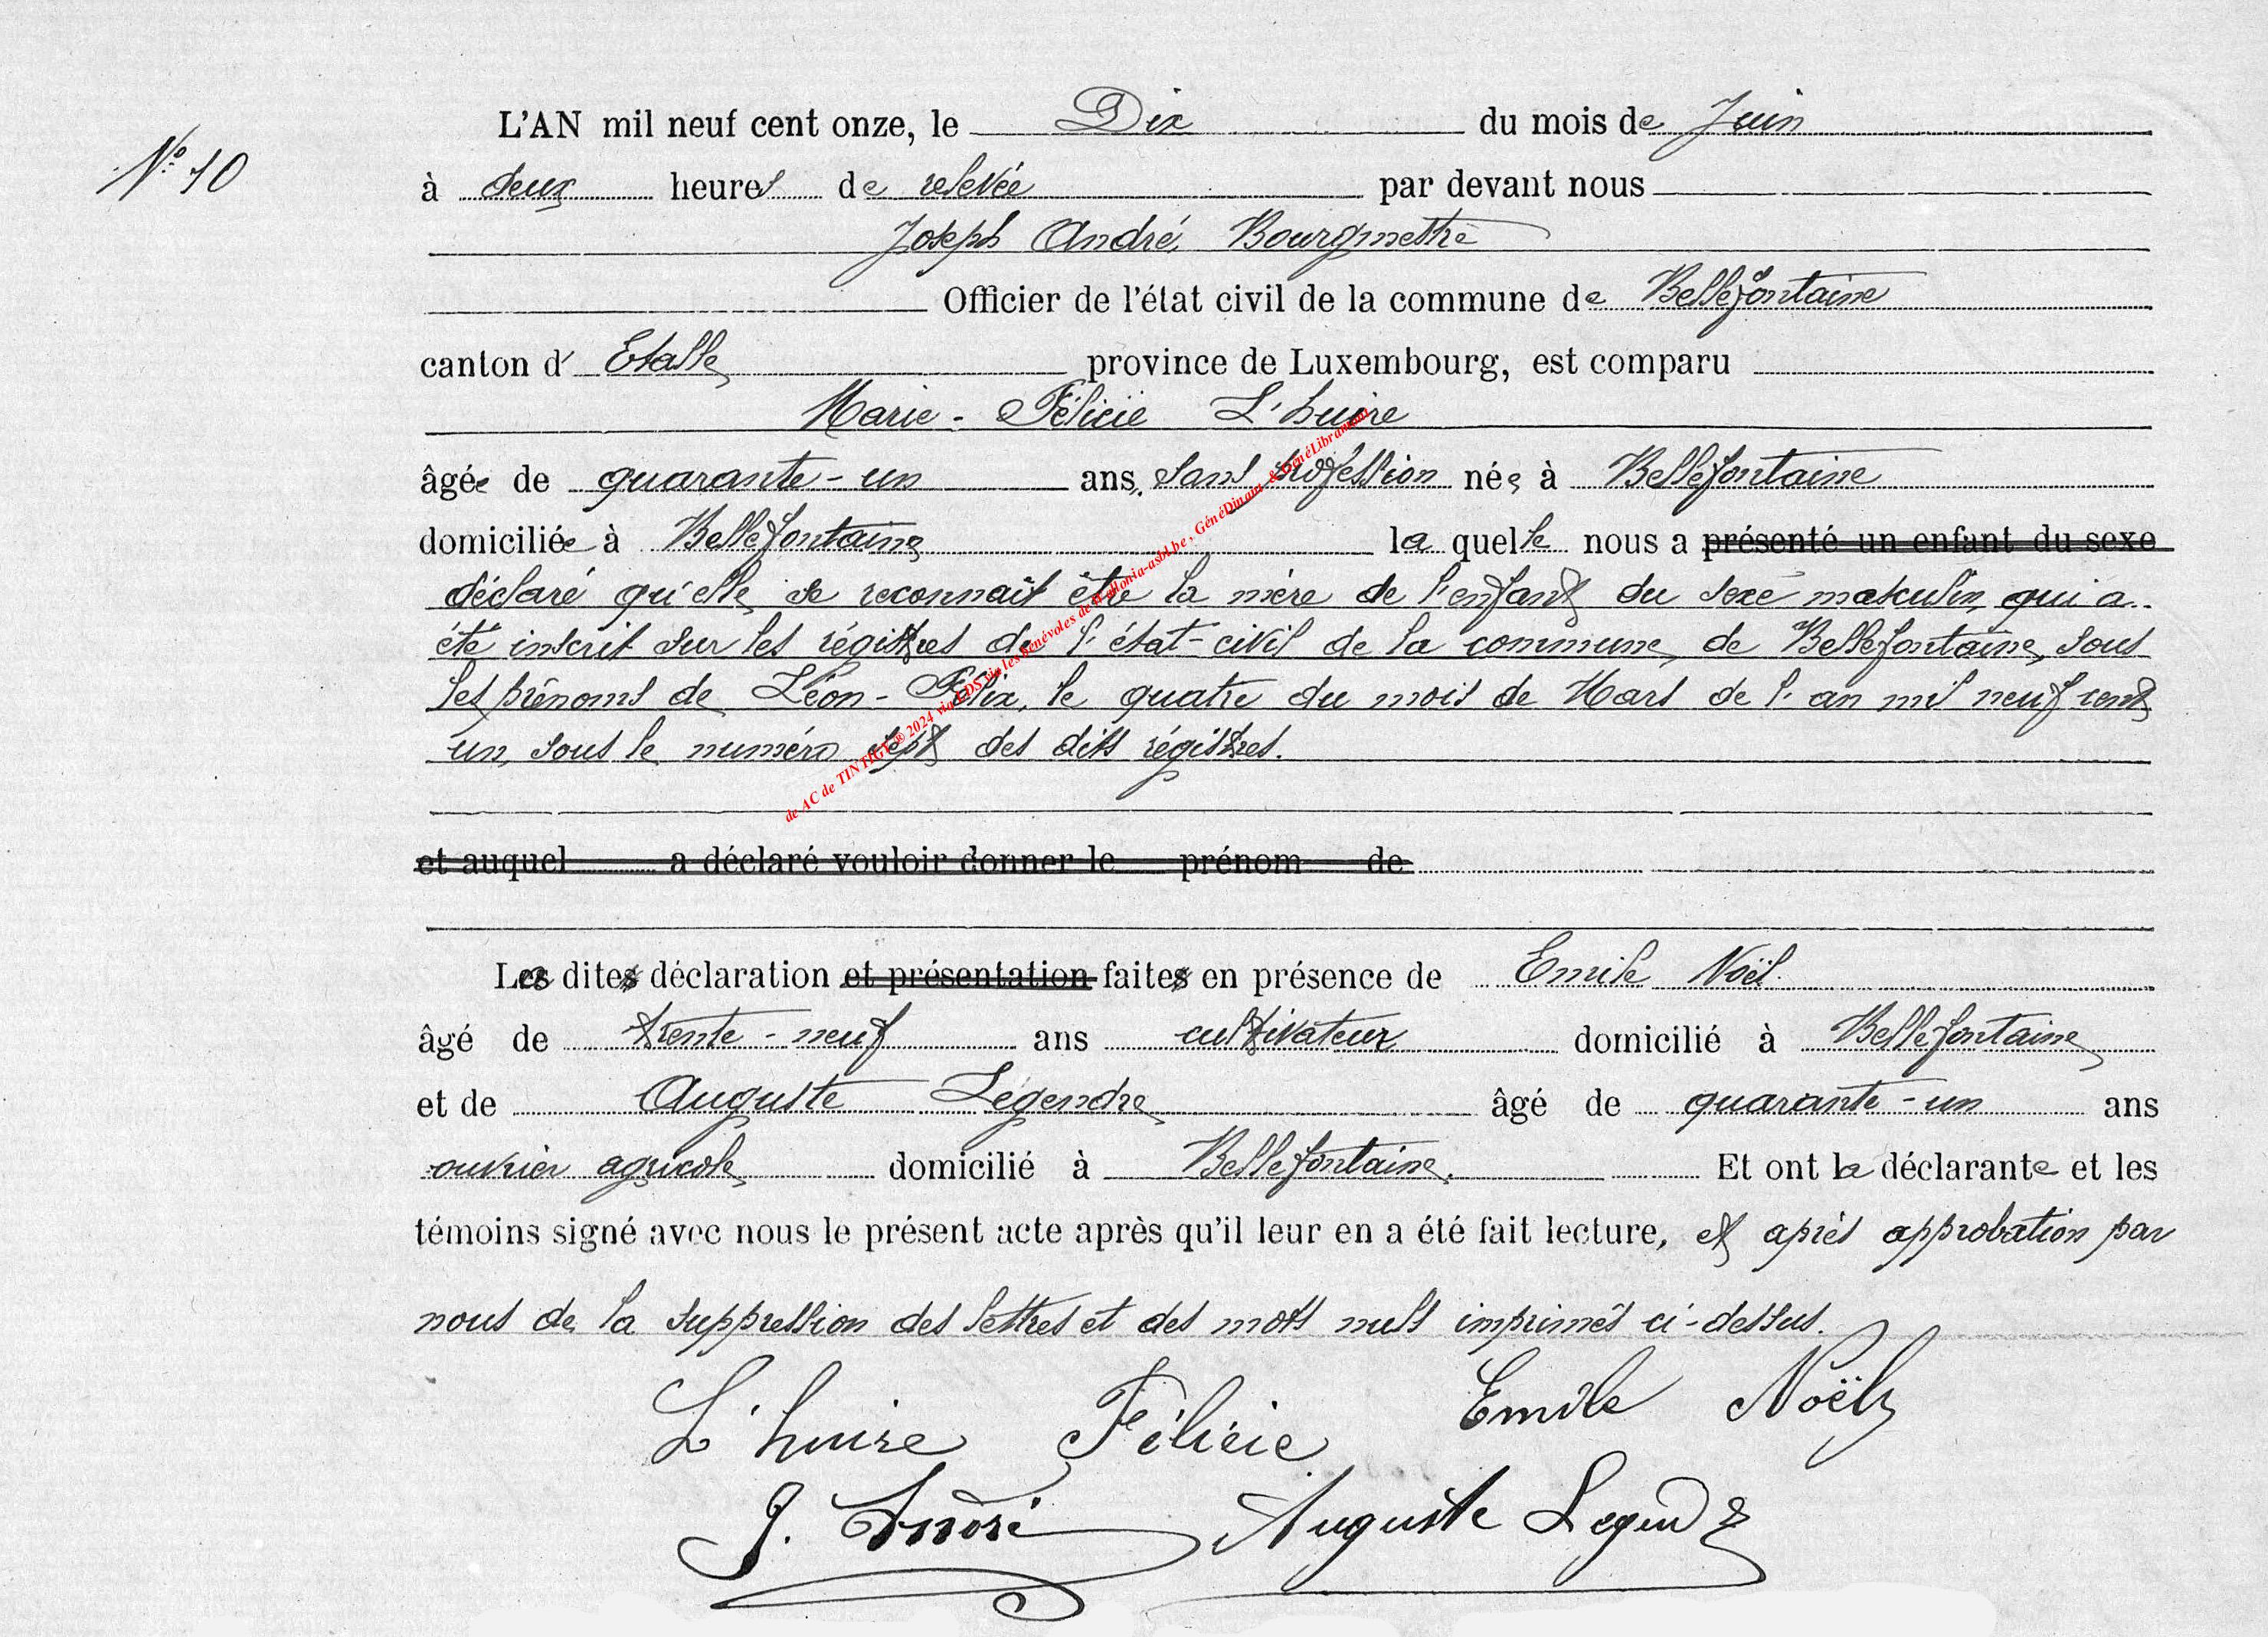 N° 10
L'AN mil neuf cent onze, le Dix du mois de Juin
à deux heures de relevée par devant nous
Joseph André, Bourgmestre
Officier de l'état civil de la commune de Bellefontaine
canton d' Etalle province de Luxembourg, est comparu
Marie - Félicie L'huire
âgée de quarante - un ans, sans profession née à Bellefontaine
domiciliée à Bellefontaine la quelle nous a présenté un enfant du sexe
déclaré qu'elle se reconnait être la mère de l'enfant du sexe masculin, qui a
été inscrit sur les régistres de l'état-civil de la commune de Bellefontaine, sous
les prénoms de Léon - Félix, le quatre du mois de Mars de l'an mil neuf cent
un, sous le numéro sept des dits régistres.
et auquel a déclaré vouloir donner le prénom de
La dite déclaration et présentation faite en présence de Emile Noël.
âgé de trente - neuf ans cultivateur domicilié à Bellefontaine
et de Auguste Légendre âgé de quarante - un ans
ouvrier agricole domicilié à Bellefontaine. Et ont la déclarante et les
témoins signé avec nous le présent acte après qu'il leur en a été fait lecture, et après approbation par
nous de la suppression des lettres et des mots nuls imprimés ci-dessus.
L'huire Félicie Emile Noël
J. André Auguste Legendre
de AC de TINTIGY ® 2024 via LDS via les bénévoles de Wallonia-asbl.be, GénéDinant & GénéLibramont